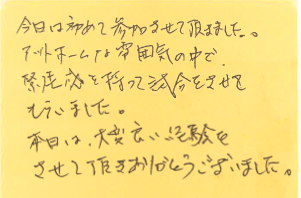 今日は初めて参加させて頂きました。
アットホームな雰囲気の中で、
緊張感を持って試合をさせて
もらいました。
本日は、大変良い経験を
させて頂きありがとうございました。